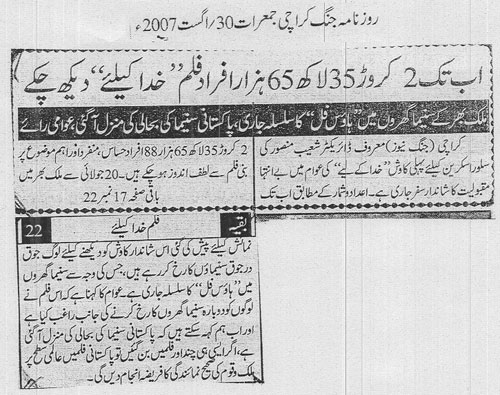 روزنامہ جنگ کراچی جمعرات 30/اگست 2007ء
اب تک 2 کروڑ 35 لاکھ 65 ہزار افراد فلم ”خدا کیلئے“ دیکھ چکے
ملک بھر کے سنیما گھروں میں ”ہاؤس فل“ کا سلسلہ جاری، پاکستانی سنیما کی بحالی کی منزل آ گئی، عوامی رائے
کراچی (جنگ نیوز) معروف ڈائریکٹر شعیب منصور کی
سلور اسکرین کیلئے پہلی کاوش ”خدا کے لیے“ کی عوام میں بے انتہا
مقبولیت کا شاندار سفر جاری ہے۔ اعداد و شمار کے مطابق اب تک
2 کروڑ 35 لاکھ 65 ہزار 88 افراد حساس، منفرد اور اہم موضوع پر
بنی فلم سے لطف اندوز ہو چکے ہیں۔ 20 جولائی سے ملک بھر میں
باقی صفحہ 17 نمبر 22
بقیہ فلم خدا کیلئے 22
نمائش کیلئے پیش کی گئی اس شاندار کاوش کو دیکھنے کیلئے لوگ جوق
در جوق سنیماؤں کا رخ کر رہے ہیں، جس کی وجہ سے سنیما گھروں
میں ”ہاؤس فل“ کا سلسلہ جاری ہے۔ عوام کا کہنا ہے کہ اس فلم نے
لوگوں کو دوبارہ سنیما کا رخ کرنے کی جانب راغب کیا ہے
اور اب ہم کہہ سکتے ہیں کہ پاکستانی سنیما کی بحالی کی منزل آ گئی
ہے، اگر ایسی ہی چند اور فلمیں بن گئیں تو پاکستانی فلمیں عالمی سطح پر
ملک و قوم کی صحیح نمائندگی کا فریضہ انجام دیں گی۔